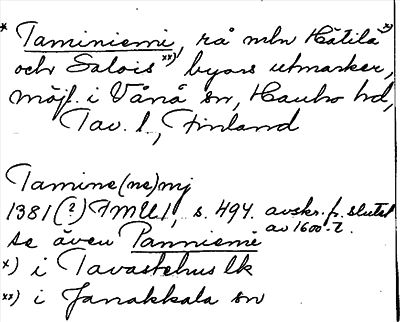 * Taminiemi, rå mln Hätilä*)
och Salois**) byars utmarker,
möjl. i Vånå sn, Hauho hd,
Tav. l., Finland
Tamine(ne)mj
1381(?) FMU 1, s. 494. avskr. fr. slutet
av 1600-t.
se även Panniemi
*) i Tavastehus lk
**) i Janakkala sn